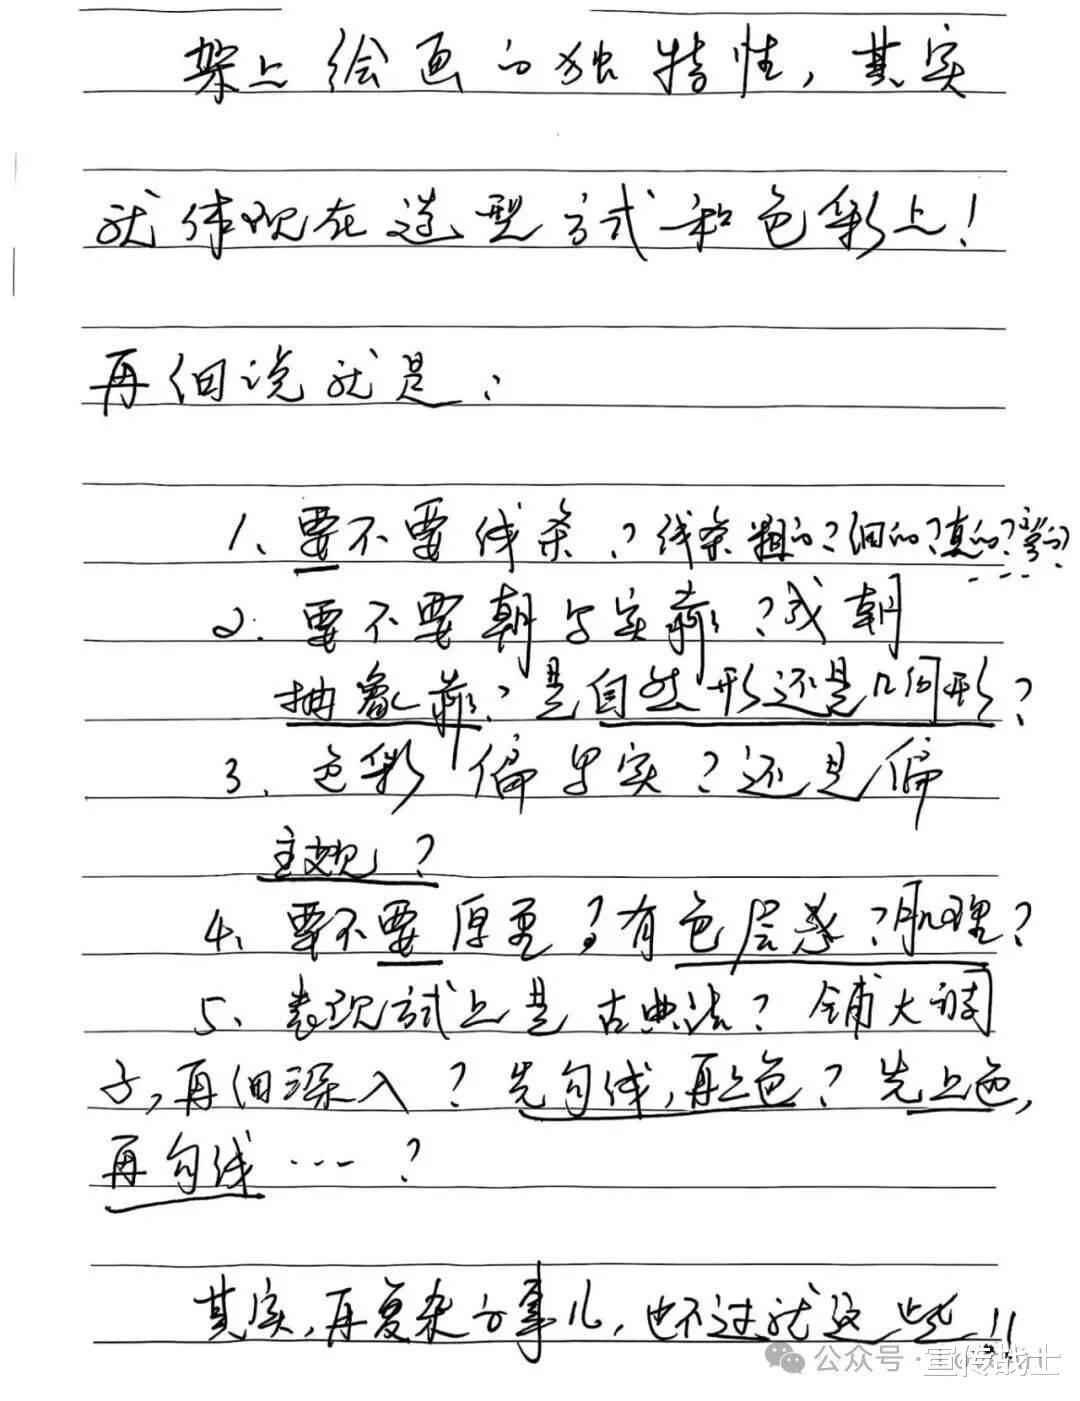 架上绘画的独特性，其实
就体现在造型方式和色彩上！
再细说就是：
1、要不要线条？线条粗的？细的？直的？弯的？
2、要不要朝写实靠？或朝
抽象靠？是自然形还是几何形？
3、色彩偏写实？还是偏
主观？
4、要不要厚重？有色层感？肌理？
5、表现式上是古典法？铺大调
子，再细深入？先勾线，再上色？先上色，
再勾线……？
其实，再复杂的事儿，也不过就这些！
公众号·宣传战士